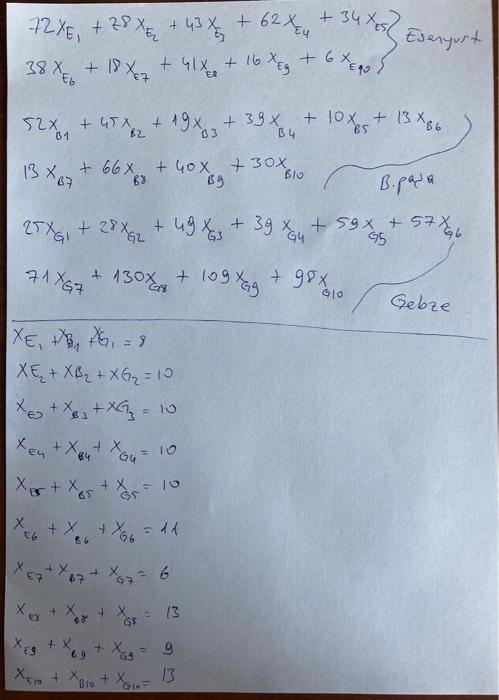 72XE1 + 28XE2 + 43XE3 + 62XE4 + 34XE5
Esenyurt
38XE6 + 18XE7 + 41XE8 + 16XE9 + 6XE10
52XB1 + 45XB2 + 19XB3 + 39XB4 + 10XB5 + 13XB6
13XB7 + 66XB8 + 40XB9 + 30XB10
B.paşa
25XG1 + 28XG2 + 49XG3 + 39XG4 + 59XG5 + 57XG6
71XG7 + 130XG8 + 109XG9 + 98XG10
Gebze
XE1 + XB1 + XG1 = 8
XE2 + XB2 + XG2 = 10
XE3 + XB3 + XG3 = 10
XE4 + XB4 + XG4 = 10
XE5 + XB5 + XG5 = 10
XE6 + XB6 + XG6 = 11
XE7 + XB7 + XG7 = 6
XE8 + XB8 + XG8 = 13
XE9 + XB9 + XG9 = 9
XE10 + XB10 + XG10 = 13